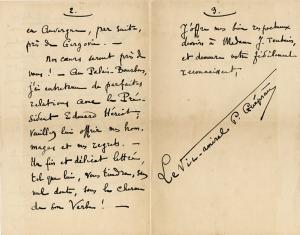 2.
en Auvergne, par suite,
près de Gergovie. —
Nos cœurs seront près de
vous ! — Au Palais-Bourbon,
j'ai entretenu de parfaites
relations avec le Pré-
sident Edouard Herriot ;
veuillez lui offrir mes hom-
mages et mes regrets. —
Un fin et délicat lettré,
tel que lui, vous tiendra, sans
nul doute, sous le charme
de son Verbe ! —
3.
J'offre mes bien respectueux
devoirs à Madame J.
et demeure votre fidèlement
reconnaissant,
Le Vice-amiral P.